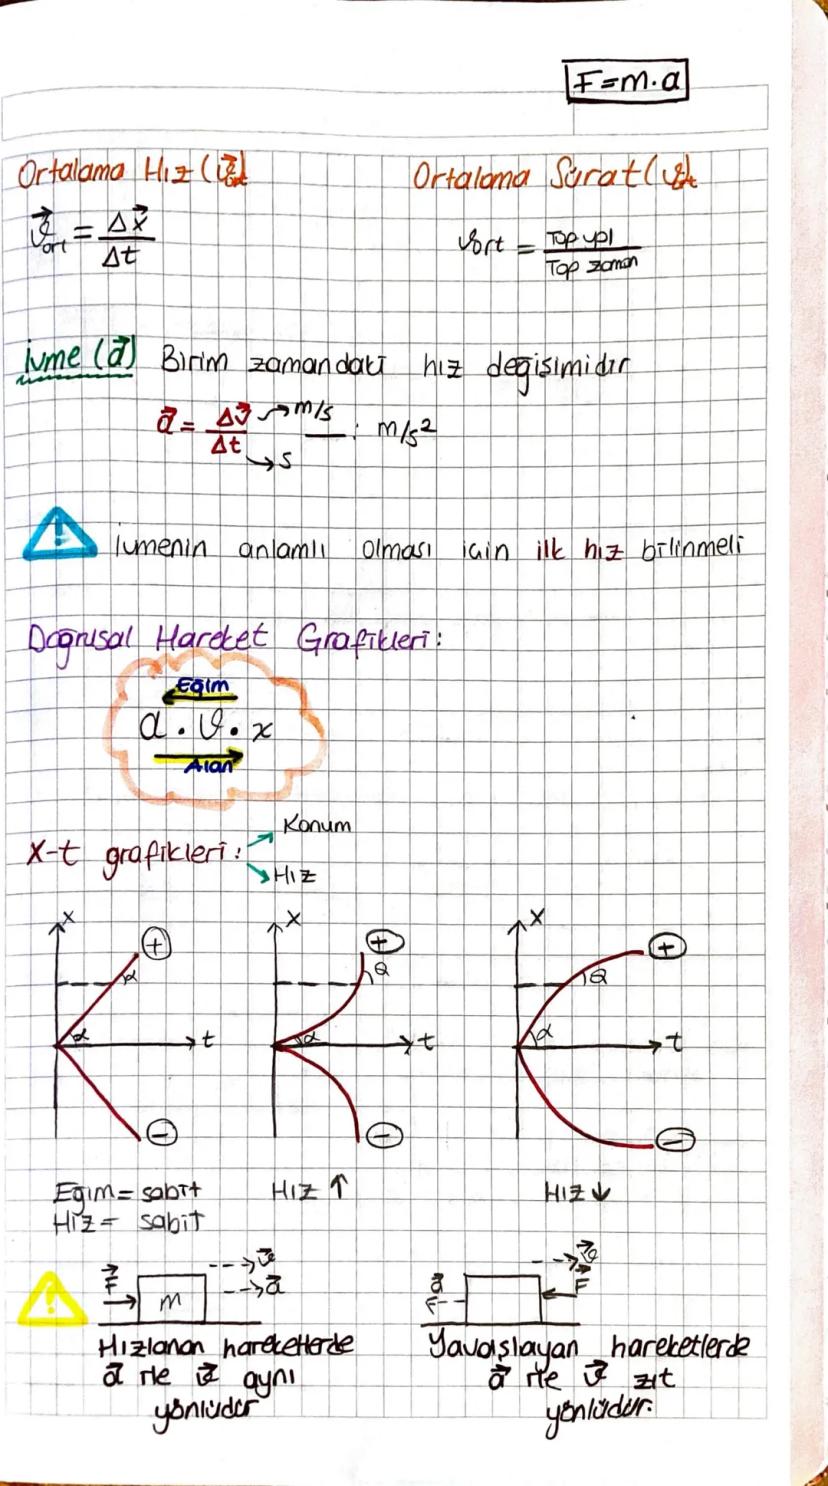 F=m.a
Ortalama Hız (v⃗ort)
Ortalama Sürat (vort)
v⃗ort = Δx⃗ / Δt
vort = Top yol / Top zaman
İvme (a⃗) Birim zamandaki hız değişimidir
a⃗ = Δv⃗ / Δt → m/s → s : m/s²
! İvmenin anlamlı olması için ilk hız bilinmeli
Doğrusal Hareket Grafikleri:
Eğim
a . v . x
Alan
x-t grafikleri:
Konum
Hız
x + α α t -
x + θ α t -
x + θ α t -
Eğim = sabit
Hız = sabit
Hız ↑
Hız ↓
! F⃗ m v⃗ a⃗
a⃗ v⃗ F⃗
Hızlanan hareketlerde
a⃗ ile v⃗ aynı
yönlüdür
Yavaşlayan hareketlerde
a⃗ ile v⃗ zıt
yönlüdür.